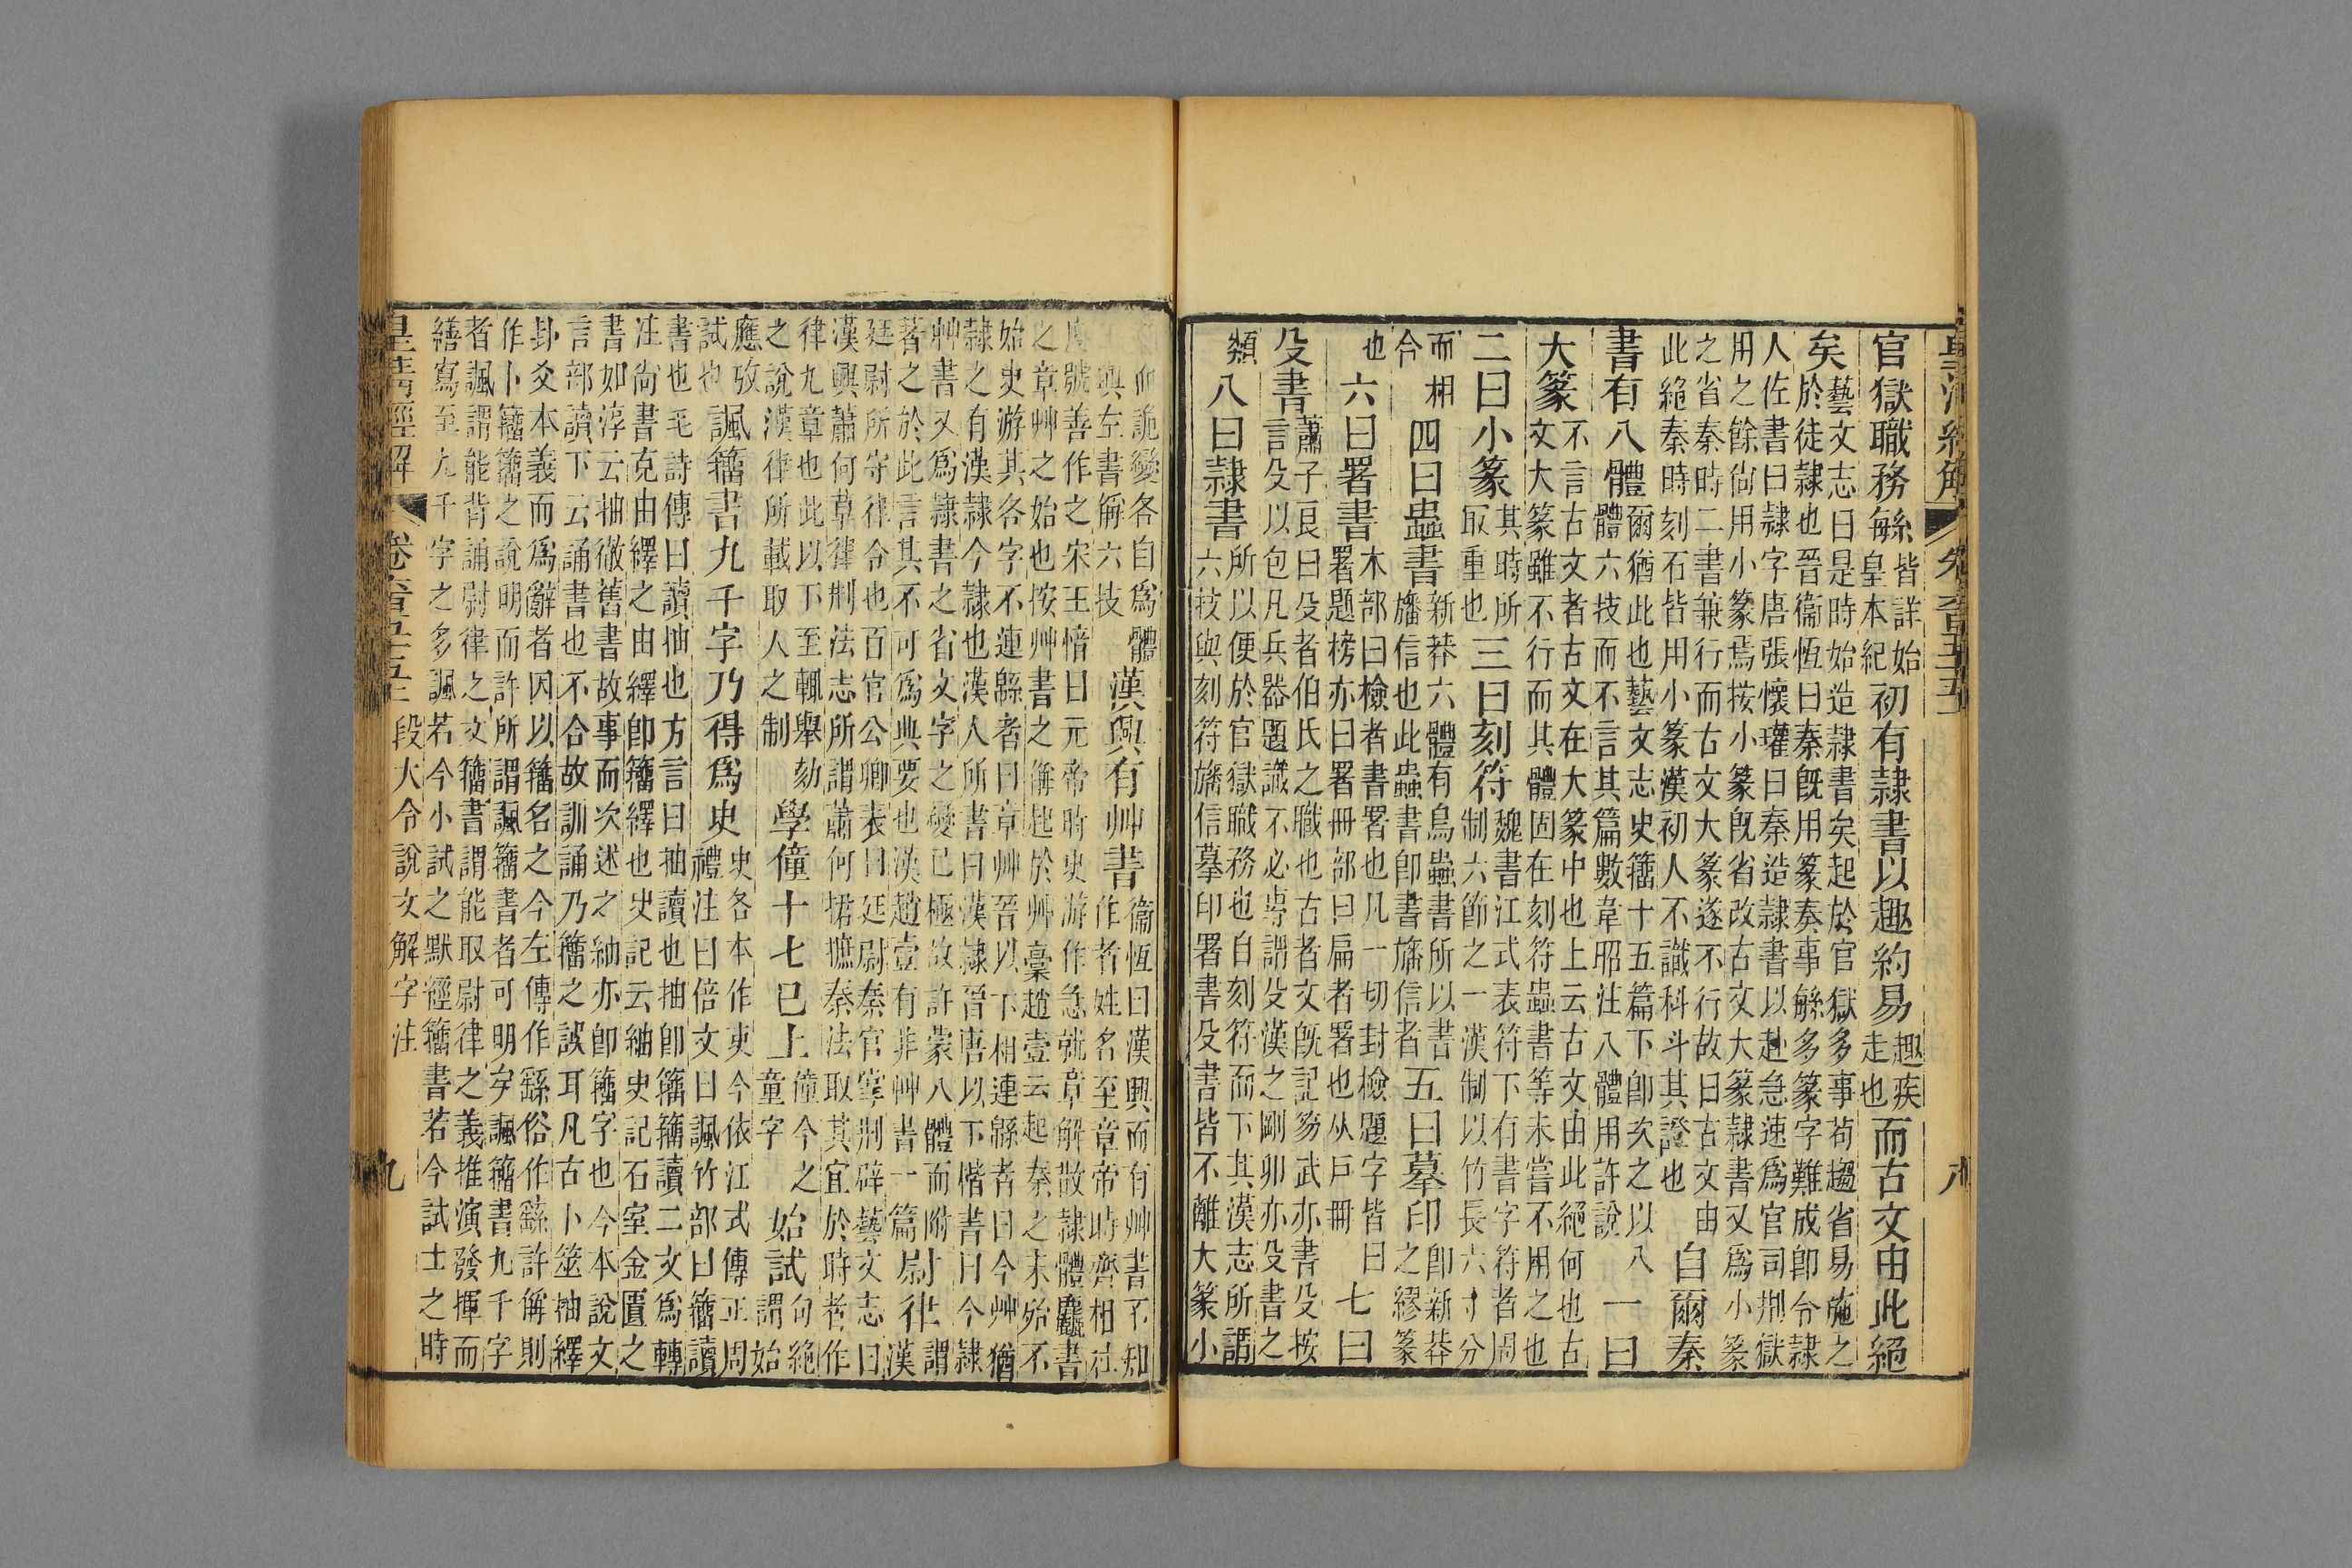 皇清經解 卷六百五十五 八
官獄職務緐皆詳始皇本紀初有隷書以趣約易趣疾走也而古文由此絕
矣藝文志曰是時始造隷書矣起於官獄多事苟趨省易施之於徒隷也晉衞恆曰秦旣用篆奏事緐多篆字難成卽令隷
人佐書曰隷字唐張懷瓘曰秦造隷書以赴急速爲官司刑獄用之餘尙用小篆焉按小篆旣省改古文大篆隷書又爲小篆
之省秦時二書兼行而古文大篆遂不行故曰古文由此絕秦時刻石皆用小篆漢初人不識科斗其證也自爾秦
書有八體爾猶此也藝文志史籒十五篇下卽次之以八體六技而不言其篇數韋昭注八體用許說一曰
大篆不言古文者古文在大篆中也上云古文由此絕何也古文大篆雖不行而其體固在刻符蟲書等未嘗不用之也
二曰小篆其時所取重也三曰刻符魏書江式表符下有書字符者周制六節之一漢制以竹長六寸分
而相合四曰蟲書新莽六體有鳥蟲書所以書旛信也此蟲書卽書旛信者五曰摹印卽新莽之繆篆
也六曰署書木部曰檢者書署也凡一切封檢題字皆曰署題榜亦曰署冊部曰扁者署也从戶冊七曰
殳書蕭子良曰殳者伯氏之職也古者文旣記笏武亦書殳按言殳以包凡兵器題識不必專謂殳漢之剛卯亦殳書之
類八曰隷書所以便於官獄職務也自刻符而下其漢志所謂六技與刻符旛信摹印署書殳書皆不離大篆小
而詭變各自爲體與左書解六技漢興有艸書衞恆曰漢興而有艸書不知作者姓名至章帝時齊相杜
度號善作之宋王愔曰元帝時史游作急就章解散隷體麤書之章艸之始也按艸書之偁起於艸稾趙壹云起秦之末殆不
始史游其各字不連緜者曰章艸晉以下相連緜者曰今艸猶隷之有漢隷今隷也漢人所書曰漢隷晉唐以下楷書曰今隷
艸書又爲隷書之省文字之變已極故許蒙八體而附著之於此言其不可爲典要也漢趙壹有非艸書一篇尉律謂漢
廷尉所守律令也百官公卿表曰廷尉秦官掌刑辟藝文志曰漢興蕭何草律刑法志所謂蕭何捃摭秦法取其宜於時者作
律九章也此以下至輒舉劾之說漢律所載取人之制學僮十七已上僮今之童字始試句絕謂始
應攷試也諷籒書九千字乃得爲史史各本作吏今依江式傳正周禮注曰倍文曰諷竹部曰籒讀
書也毛詩傳曰讀抽也方言曰抽讀也抽卽籒籒讀二文爲轉注尙書克由繹之由繹卽籒繹也史記云紬史記石室金匱之
書如淳云抽徹舊書故事而次述之紬亦卽籒字也今本說文言部讀下云誦書也不合故訓誦乃籒之誤耳凡古卜筮抽繹
卦爻本義而爲辭者因以籒名之今左傳作繇俗作䌛許解則作卜籒籒之說明而許所謂諷籒書者可明矣諷籒書九千字
者諷謂能背誦尉律之文籒書謂能取尉律之義推演發揮而繕寫至九千字之多諷若今小試之默經籒書若今試士之時
皇清經解 卷六百五十五 段大令說文解字注 九